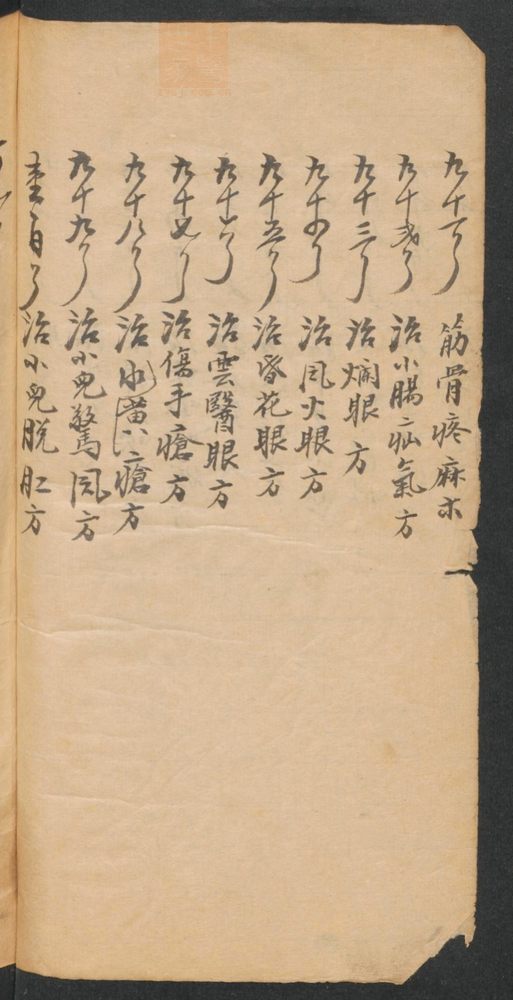 九十一 筋骨疼麻木
九十弍 治小腸疝氣方
九十三 治爛眼方
九十四 治風火眼方
九十五 治昏花眼方
九十六 治雲醫眼方
九十七 治傷手瘡方
九十八 治黃瘡方
九十九 治小兒驚風方
壹百 治小兒脱肛方